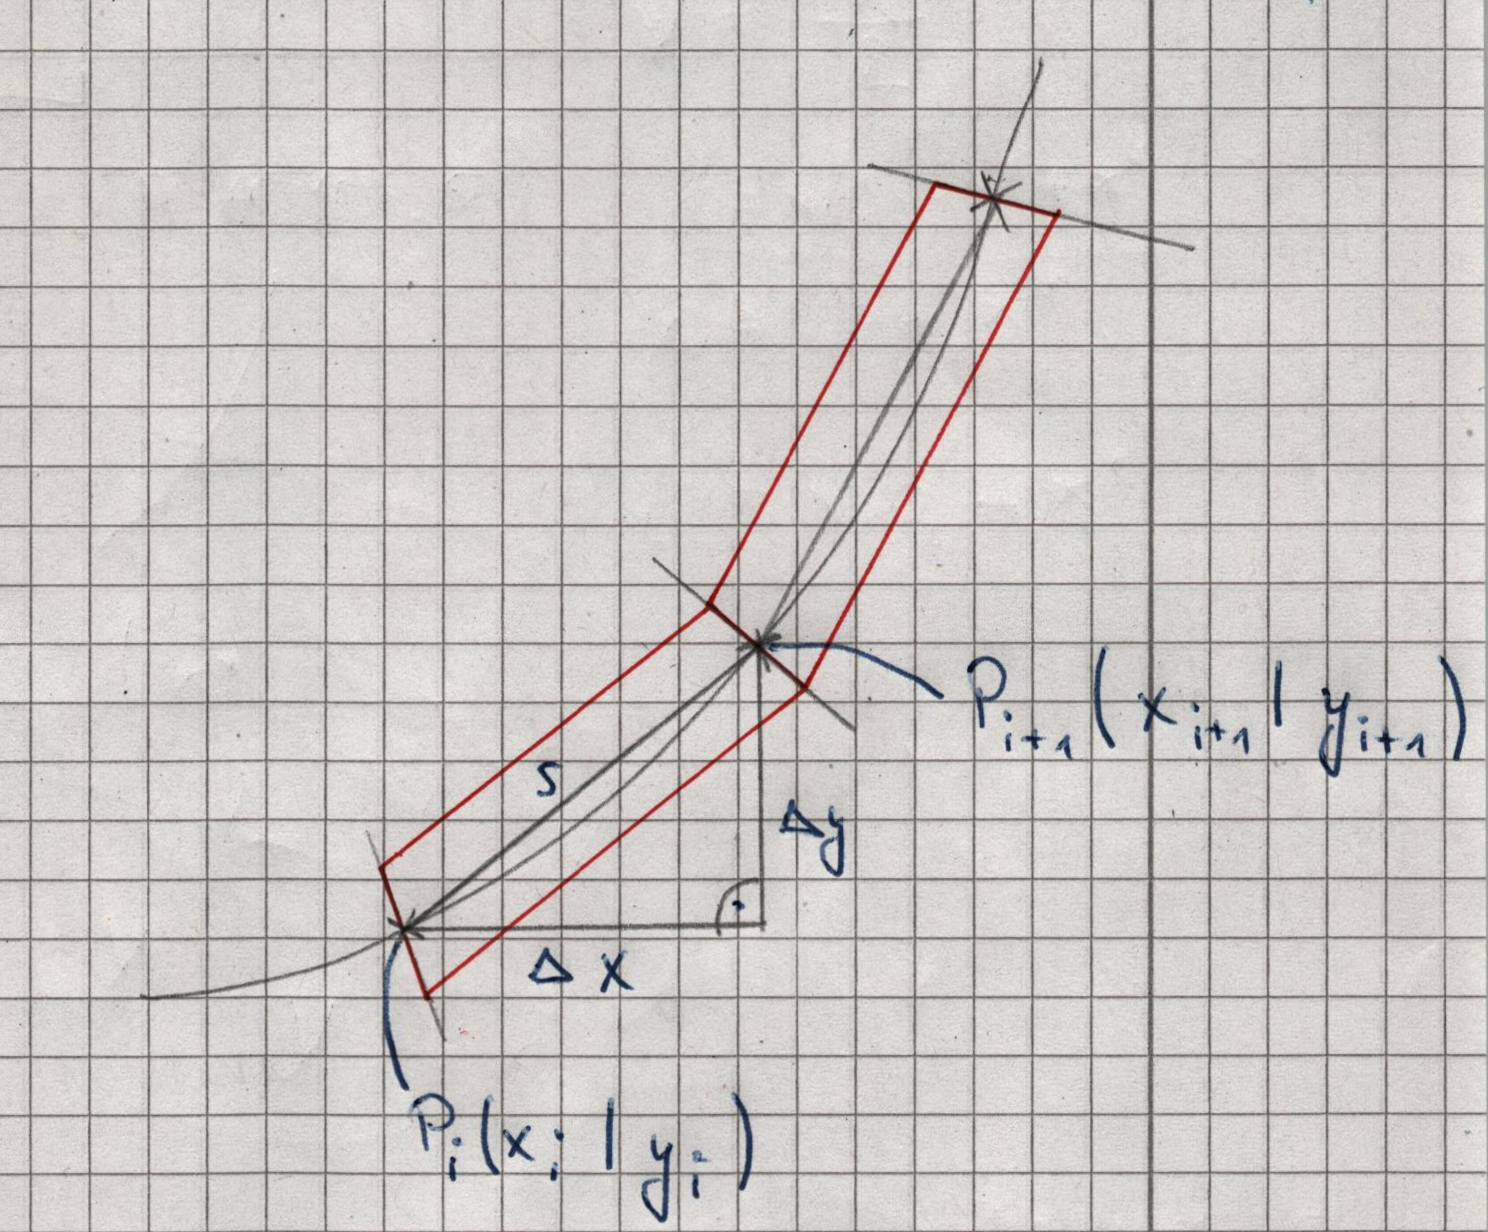 P_{i+1}(x_{i+1} | y_{i+1})
s
Δy
Δx
P_i(x_i | y_i)